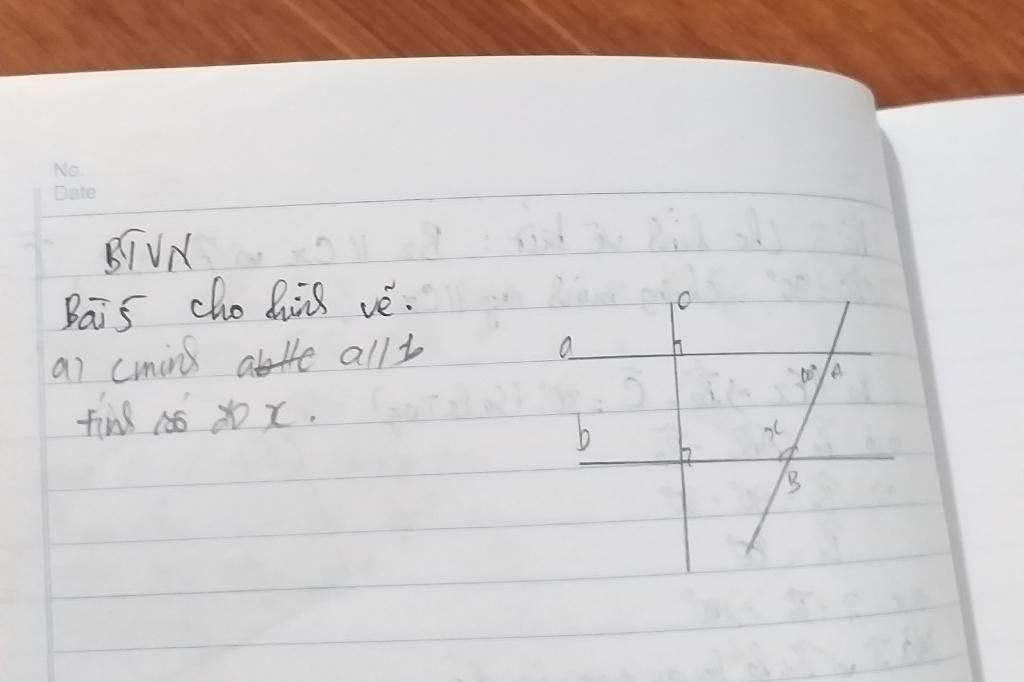 No.
Date
BTVN
Bài 5 cho hình vẽ.
a) cminh a//b
tính số đo x.
c
a
A
b
x
B